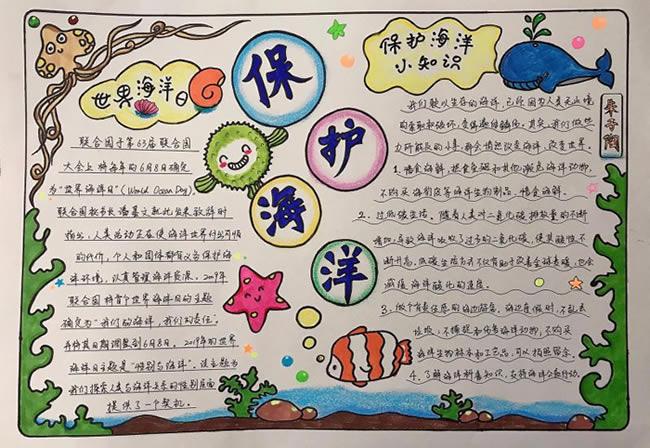 世界海洋日
联合国于第63届联合国
大会上将每年的6月8日确定
为"世界海洋日"(World Ocean Day).
联合国秘书长潘基文就此发表致辞时
指出,人类活动正在使海洋世界付出可怕
的代价,个人和团体都有义务保护海
洋环境,认真管理海洋资源。2009年
联合国将首个世界海洋日的主题
确定为"我们的海洋,我们的责任".
并将其日期调整到6月8日。2019年的世界
海洋日主题是"性别与海洋".该主题为
我们探索人类与海洋关系的性别层面
提供了一个契机。
保
护
海
洋
保护海洋
小知识
我们赖以生存的海洋,已经因为人类无止境
的索取和破坏,变得遍体鳞伤。其实,我们做些
力所能及的小事,都会清燃改变海洋、改变世界。
1.惜食海鲜,拒食鱼翅和其他濒危海洋动物,
不购买海豹皮等海洋生物制品,惜食海鲜。
2.过低碳生活。随着人类对二氧化碳排放量的不断
增加,导致海洋吸收了过多的二氧化碳,使其酸性不
断升高,低碳生活方式不仅有助于改善全球气候,也会
减缓海洋酸化的速度。
3.做个有责任感的海边游客。海边度假时,不乱丢
垃圾,不捕捉和伤害海洋动物,不购买
海洋生物标本和工艺品,可以拍照留念。
4.了解海洋科普知识,支持海洋公益行动。